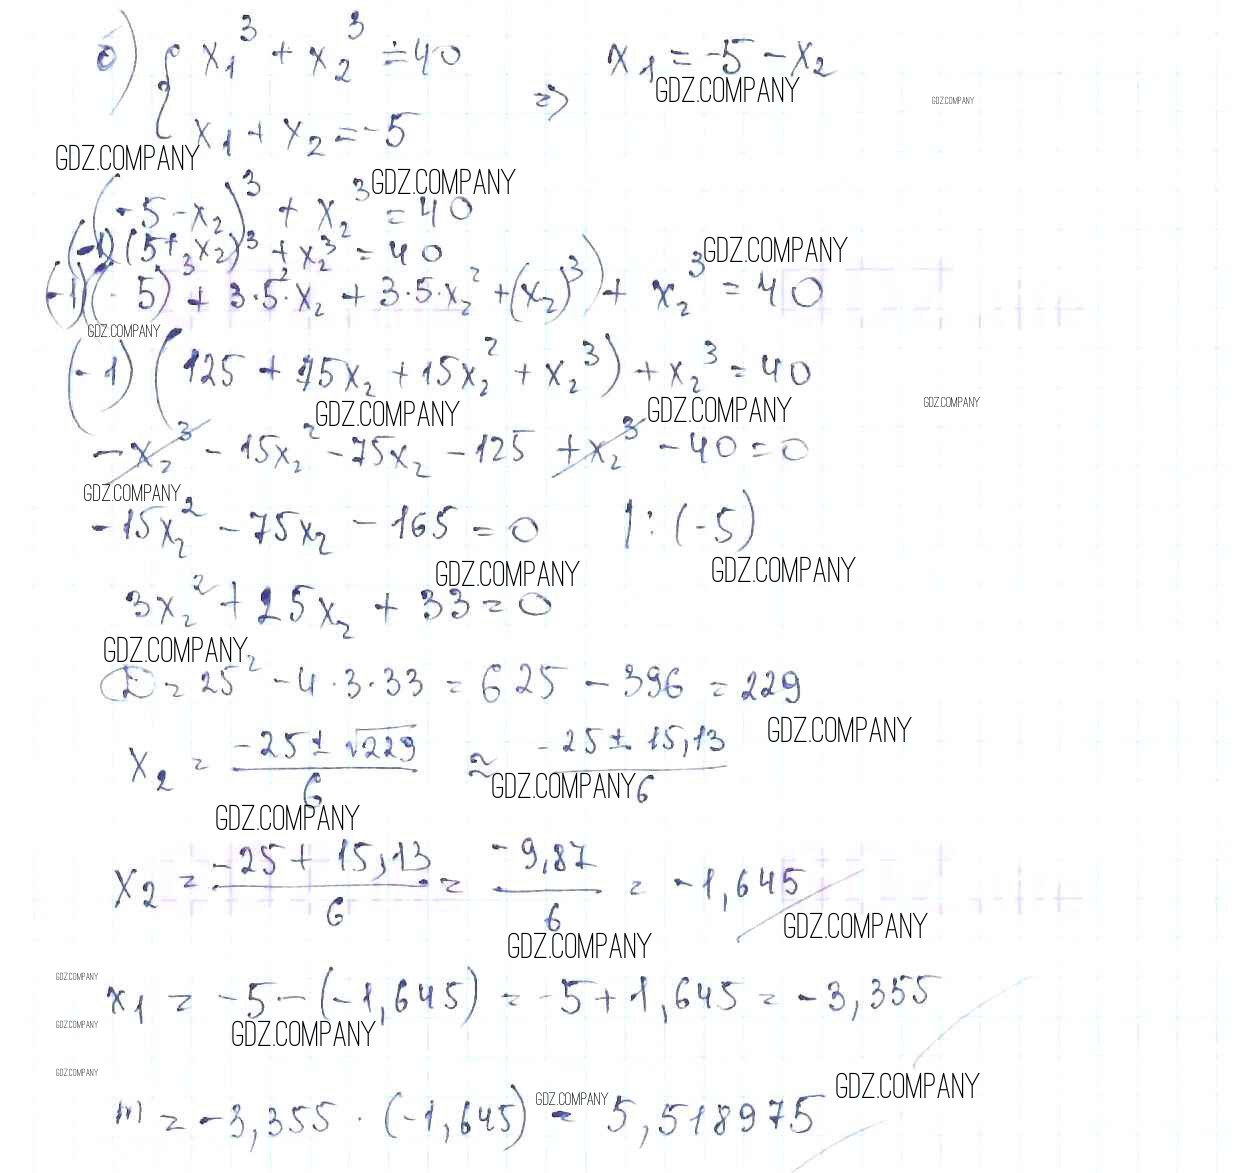 б) { x₁³ + x₂³ = 40 x₁ = -5 - x₂
=> GDZ.COMPANY GDZ.COMPANY
x₁ + x₂ = -5
GDZ.COMPANY
(-5 - x₂)³ + x₂³ = 40 GDZ.COMPANY
(-1)(5 + x₂)³ + x₂³ = 40 GDZ.COMPANY
(-1)(5)³ + 3·5²·x₂ + 3·5·x₂² + (x₂)³) + x₂³ = 40
GDZ.COMPANY
(-1)(125 + 75x₂ + 15x₂² + x₂³) + x₂³ = 40
GDZ.COMPANY GDZ.COMPANY GDZ.COMPANY
-x₂³ - 15x₂² - 75x₂ - 125 + x₂³ - 40 = 0
GDZ.COMPANY
-15x₂² - 75x₂ - 165 = 0 |:(-5)
GDZ.COMPANY GDZ.COMPANY
3x₂² + 25x₂ + 33 = 0
GDZ.COMPANY
D = 25² - 4·3·33 = 625 - 396 = 229
GDZ.COMPANY
x₂ = (-25 ± √229)/6 ≈ (-25 ± 15,13)/6
GDZ.COMPANY
GDZ.COMPANY
x₂ = (-25 + 15,13)/6 = (-9,87)/6 = -1,645
GDZ.COMPANY
GDZ.COMPANY
GDZ.COMPANY
x₁ = -5 - (-1,645) = -5 + 1,645 = -3,355
GDZ.COMPANY GDZ.COMPANY
GDZ.COMPANY GDZ.COMPANY
m = -3,355 · (-1,645) = 5,518975
GDZ.COMPANY